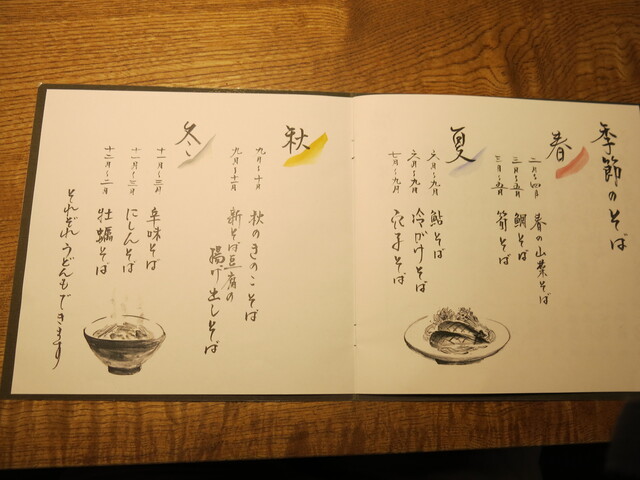 季節のそば
春
二月～四月 春の山菜そば
三月～五月 鯛そば
三月～五月 筍そば
夏
六月～九月 鮎そば
六月～九月 冷がけそば
七月～九月 茄子そば
秋
九月～十月 秋のきのこそば
九月～十一月 新そば豆腐の
揚げ出しそば
冬
十一月～三月 辛味そば
十一月～三月 にしんそば
十二月～二月 牡蠣そば
それぞれうどんもできます